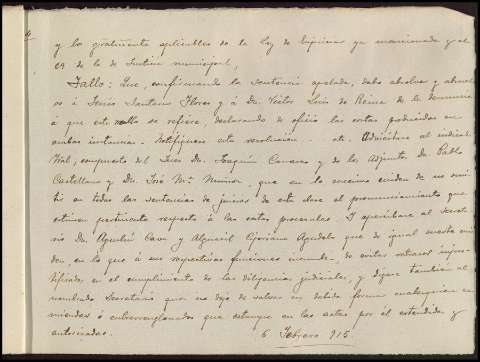 y los generalmente aplicables de la Ley de Enjuiciar ya mencionada y el
69 de la de Justicia municipal,
Fallo: Que, confirmando la sentencia apelada, debo absolver y absuel-
vo á Jesús Santano Flores y á Dn. Victor Luis de Reina de la denuncia
á que este rollo se refiere, declarando de oficio las costas producidas en
ambas instancias. Notifíquese esta resolución... etc. Adviértase al indicado
Tbal, compuesto del Juez Dn. Joaquín y de los Adjuntos Dn. Pablo
Castellano y Dn. José Mª. Muñoz, que en lo sucesivo cuiden de no omi-
tir en todas las sentencias de juicios de esta clase el pronunciamiento que
estimen pertinente respecto á las costas procesales. Y apercíbase al Secreta-
rio Dn. Agustín y Alguacil Cipriano Agudelo que de igual suerte cui-
den, en lo que á sus respectivas funciones incumbe, de evitar retrasos injus-
tificados, en el cumplimiento de las diligencias judiciales, y dígase también al
nombrado Secretario que no deje de salvar en debida forma cualesquiera en-
miendas ó entrerrenglonados que estampe en las actas por él extendidas y
autorizadas. 6 Febrero 915.